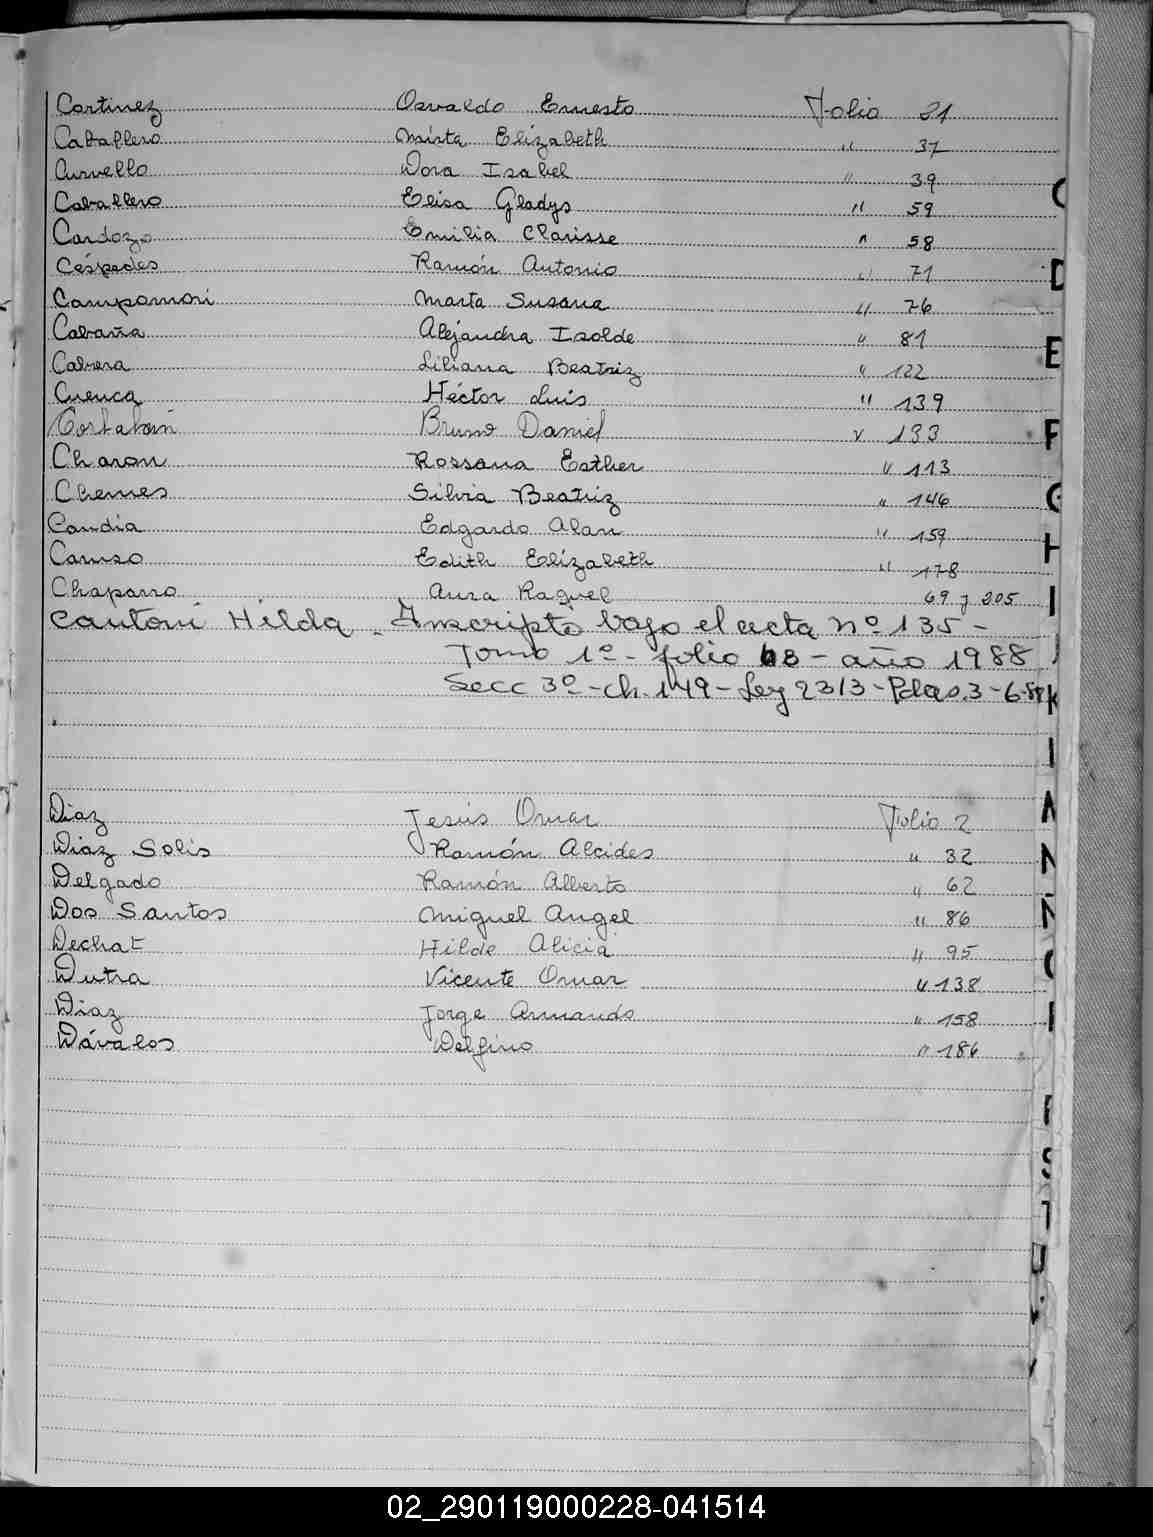 Cartinez Osvaldo Ernesto Folio 21
Caballero Mirta Elizabeth " 37
Curvello Dora Isabel " 39
Caballero Elisa Gladys " 59
Cardozo Emilia Clarisse " 58
Céspedes Ramón Antonio " 71
Campomori Marta Susana " 76
Cabaña Alejandra Isolde " 81
Cabrera Liliana Beatriz " 122
Cuenca Héctor Luis " 139
Bruno Daniel " 133
Charon Rossana Esther " 113
Chemes Silvia Beatriz " 146
Candia Edgardo Alan " 159
Caruso Edith Elizabeth " 178
Chaparro Aura Raquel 69 y 205
Cantoni Hilda - Inscripto bajo el acta nº 135 -
Tomo 1º - folio 68 - año 1988
Secc 3º - Ch. 149 - Ley 2313 - Pdas. 3-6-88
Diaz Jesús Omar Folio 2
Diaz Solis Ramón Alcides " 32
Delgado Ramón Alberto " 62
Dos Santos Miguel Angel " 86
Dechat Hilde Alicia " 95
Dutra Vicente Omar " 138
Diaz Jorge Armando " 158
Dávalos Delfino " 186
C
D
E
F
G
H
I
J
K
L
M
N
Ñ
O
P
R
S
T
U
V
02_290119000228-041514